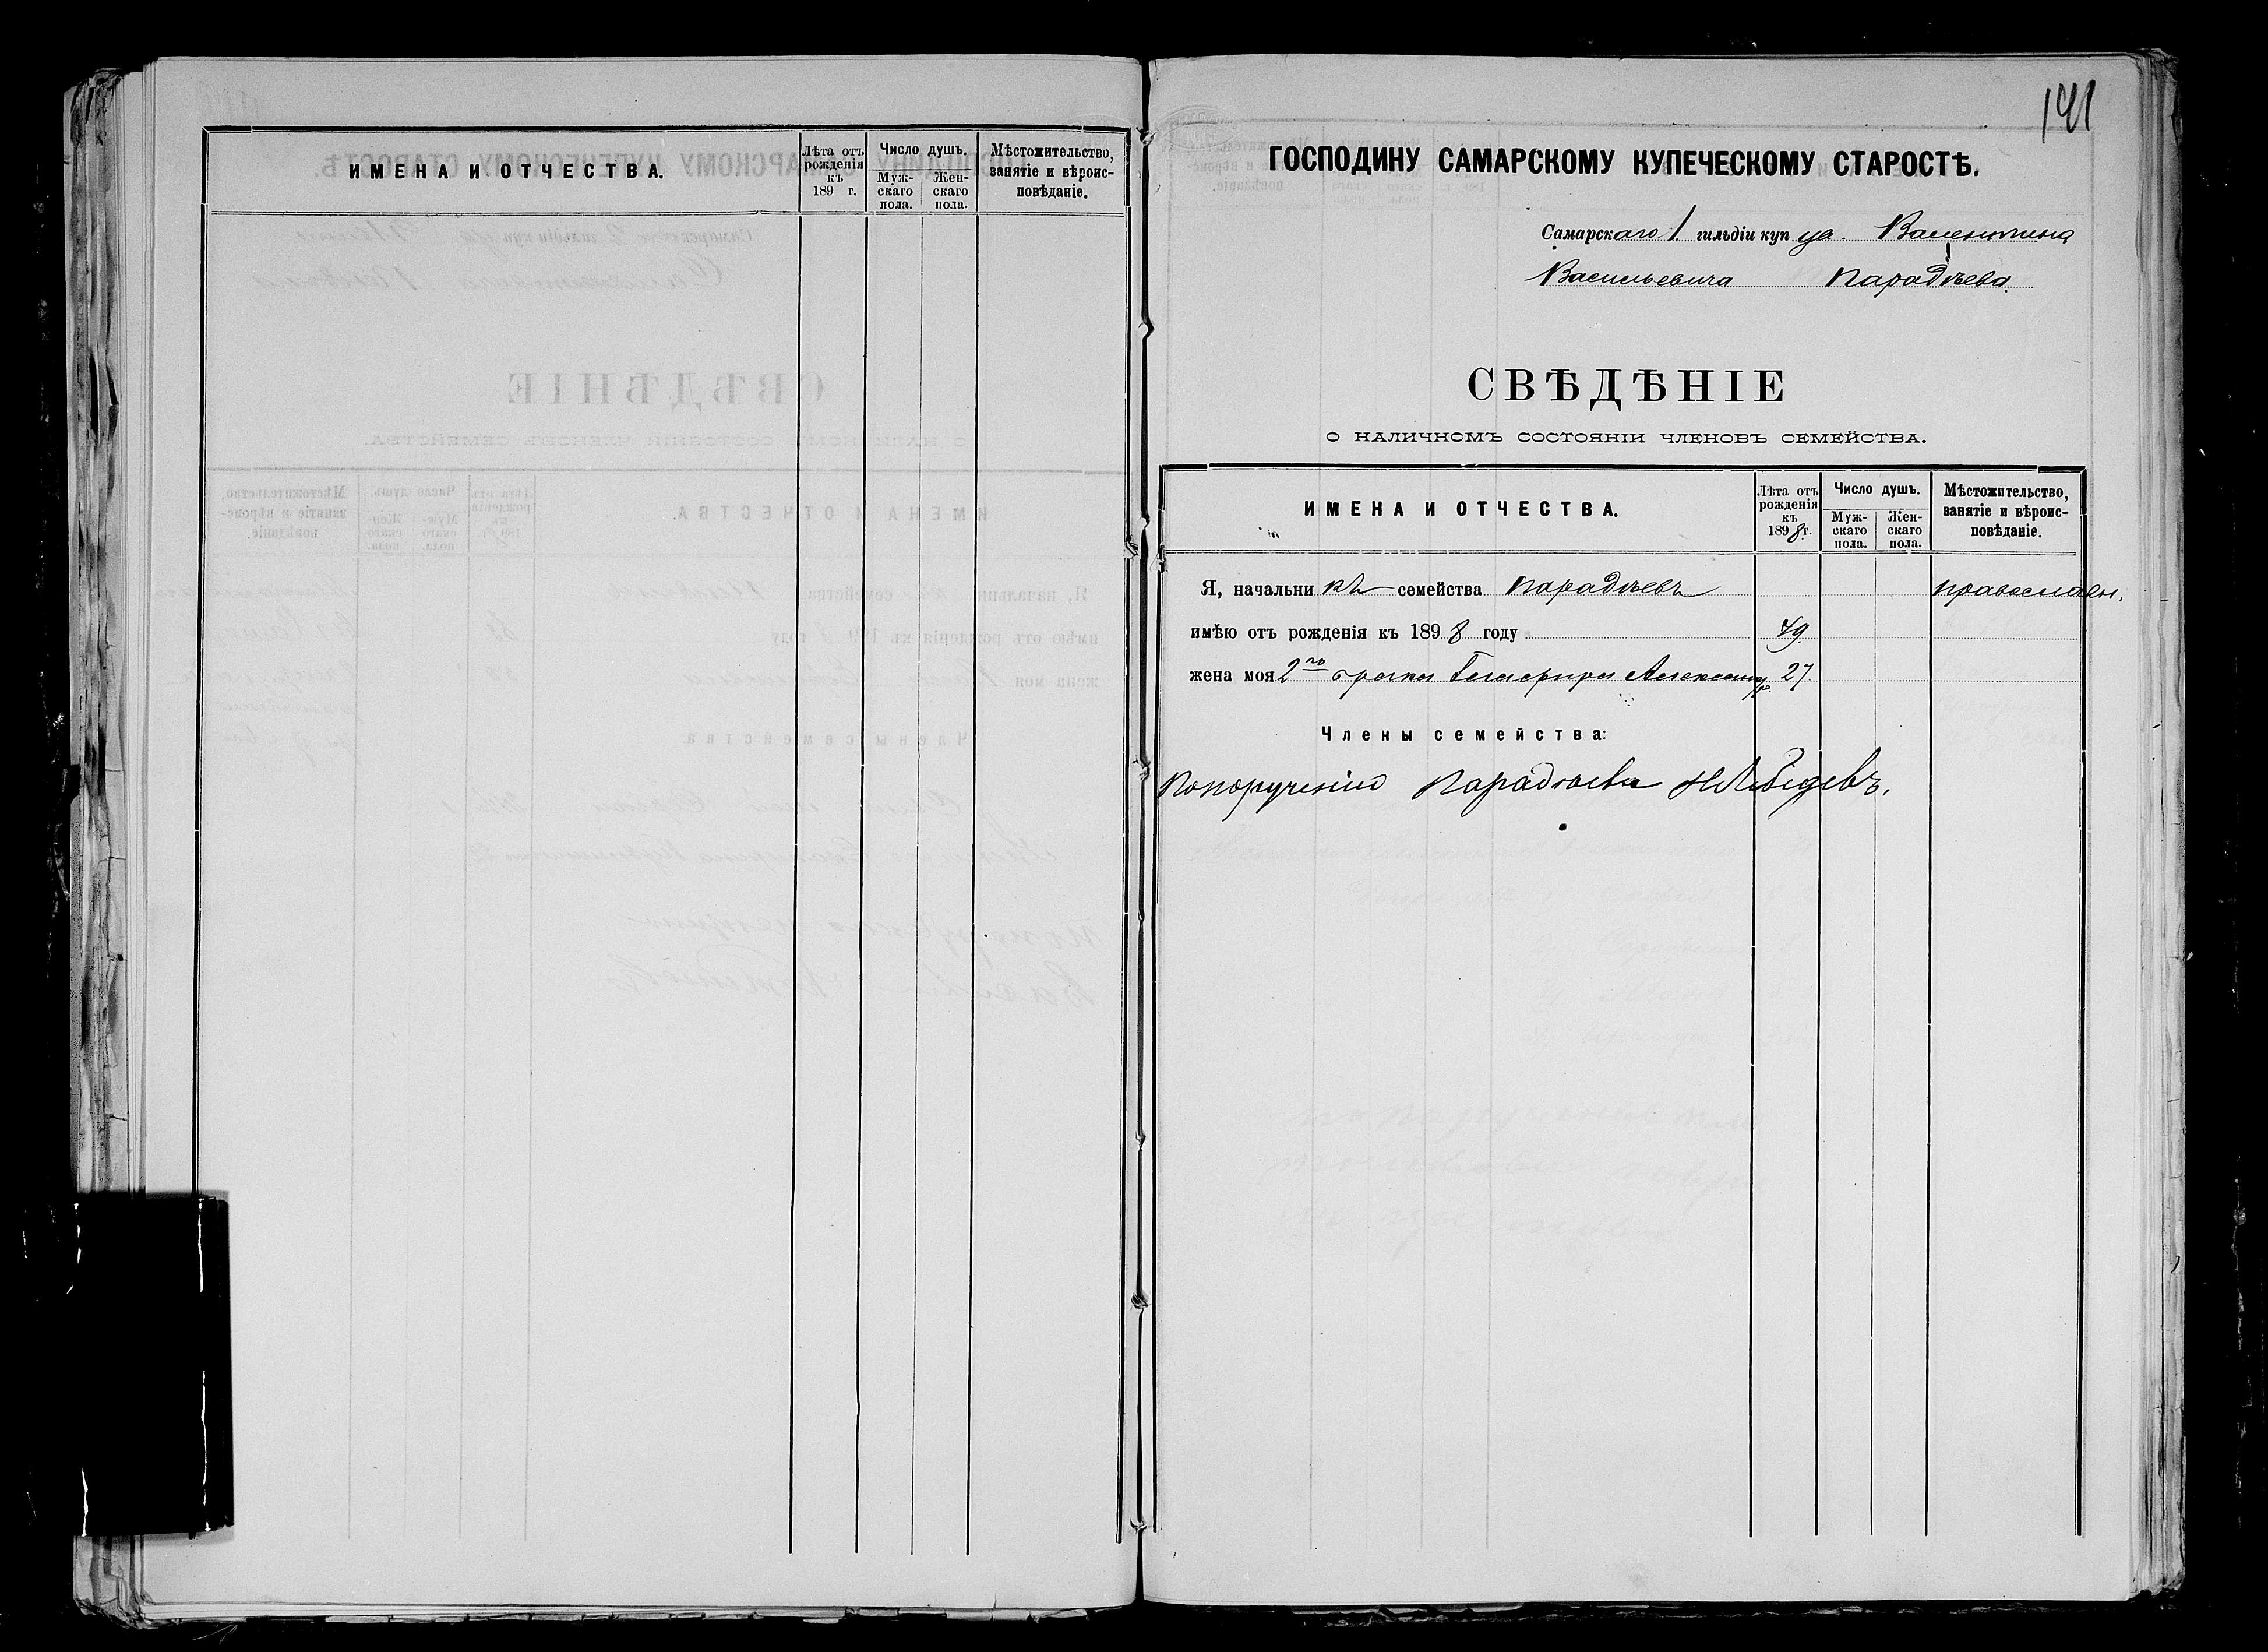 ИМЕНА И ОТЧЕСТВА.
Лѣта отъ рожденія къ 189 г.
Число душъ.
Мужскаго пола.
Женскаго пола.
Мѣстожительство, занятіе и вѣроисповѣданіе.
141
ГОСПОДИНУ САМАРСКОМУ КУПЕЧЕСКОМУ СТАРОСТѢ.
Самарскаго 1 гильдіи купца Валентина
Васильевича Парадѣева
СВѢДѢНІЕ
О НАЛИЧНОМЪ СОСТОЯНІИ ЧЛЕНОВЪ СЕМЕЙСТВА.
ИМЕНА И ОТЧЕСТВА.
Лѣта отъ рожденія къ 1898 г.
Число душъ.
Мужскаго пола.
Женскаго пола.
Мѣстожительство, занятіе и вѣроисповѣданіе.
Я, начальникъ семейства Парадѣевъ православн.
имѣю отъ рожденія къ 1898 году 49.
жена моя 2го брака Глафира Александр. 27.
Члены семейства:
По порученію Парадѣева Н Лебедевъ.